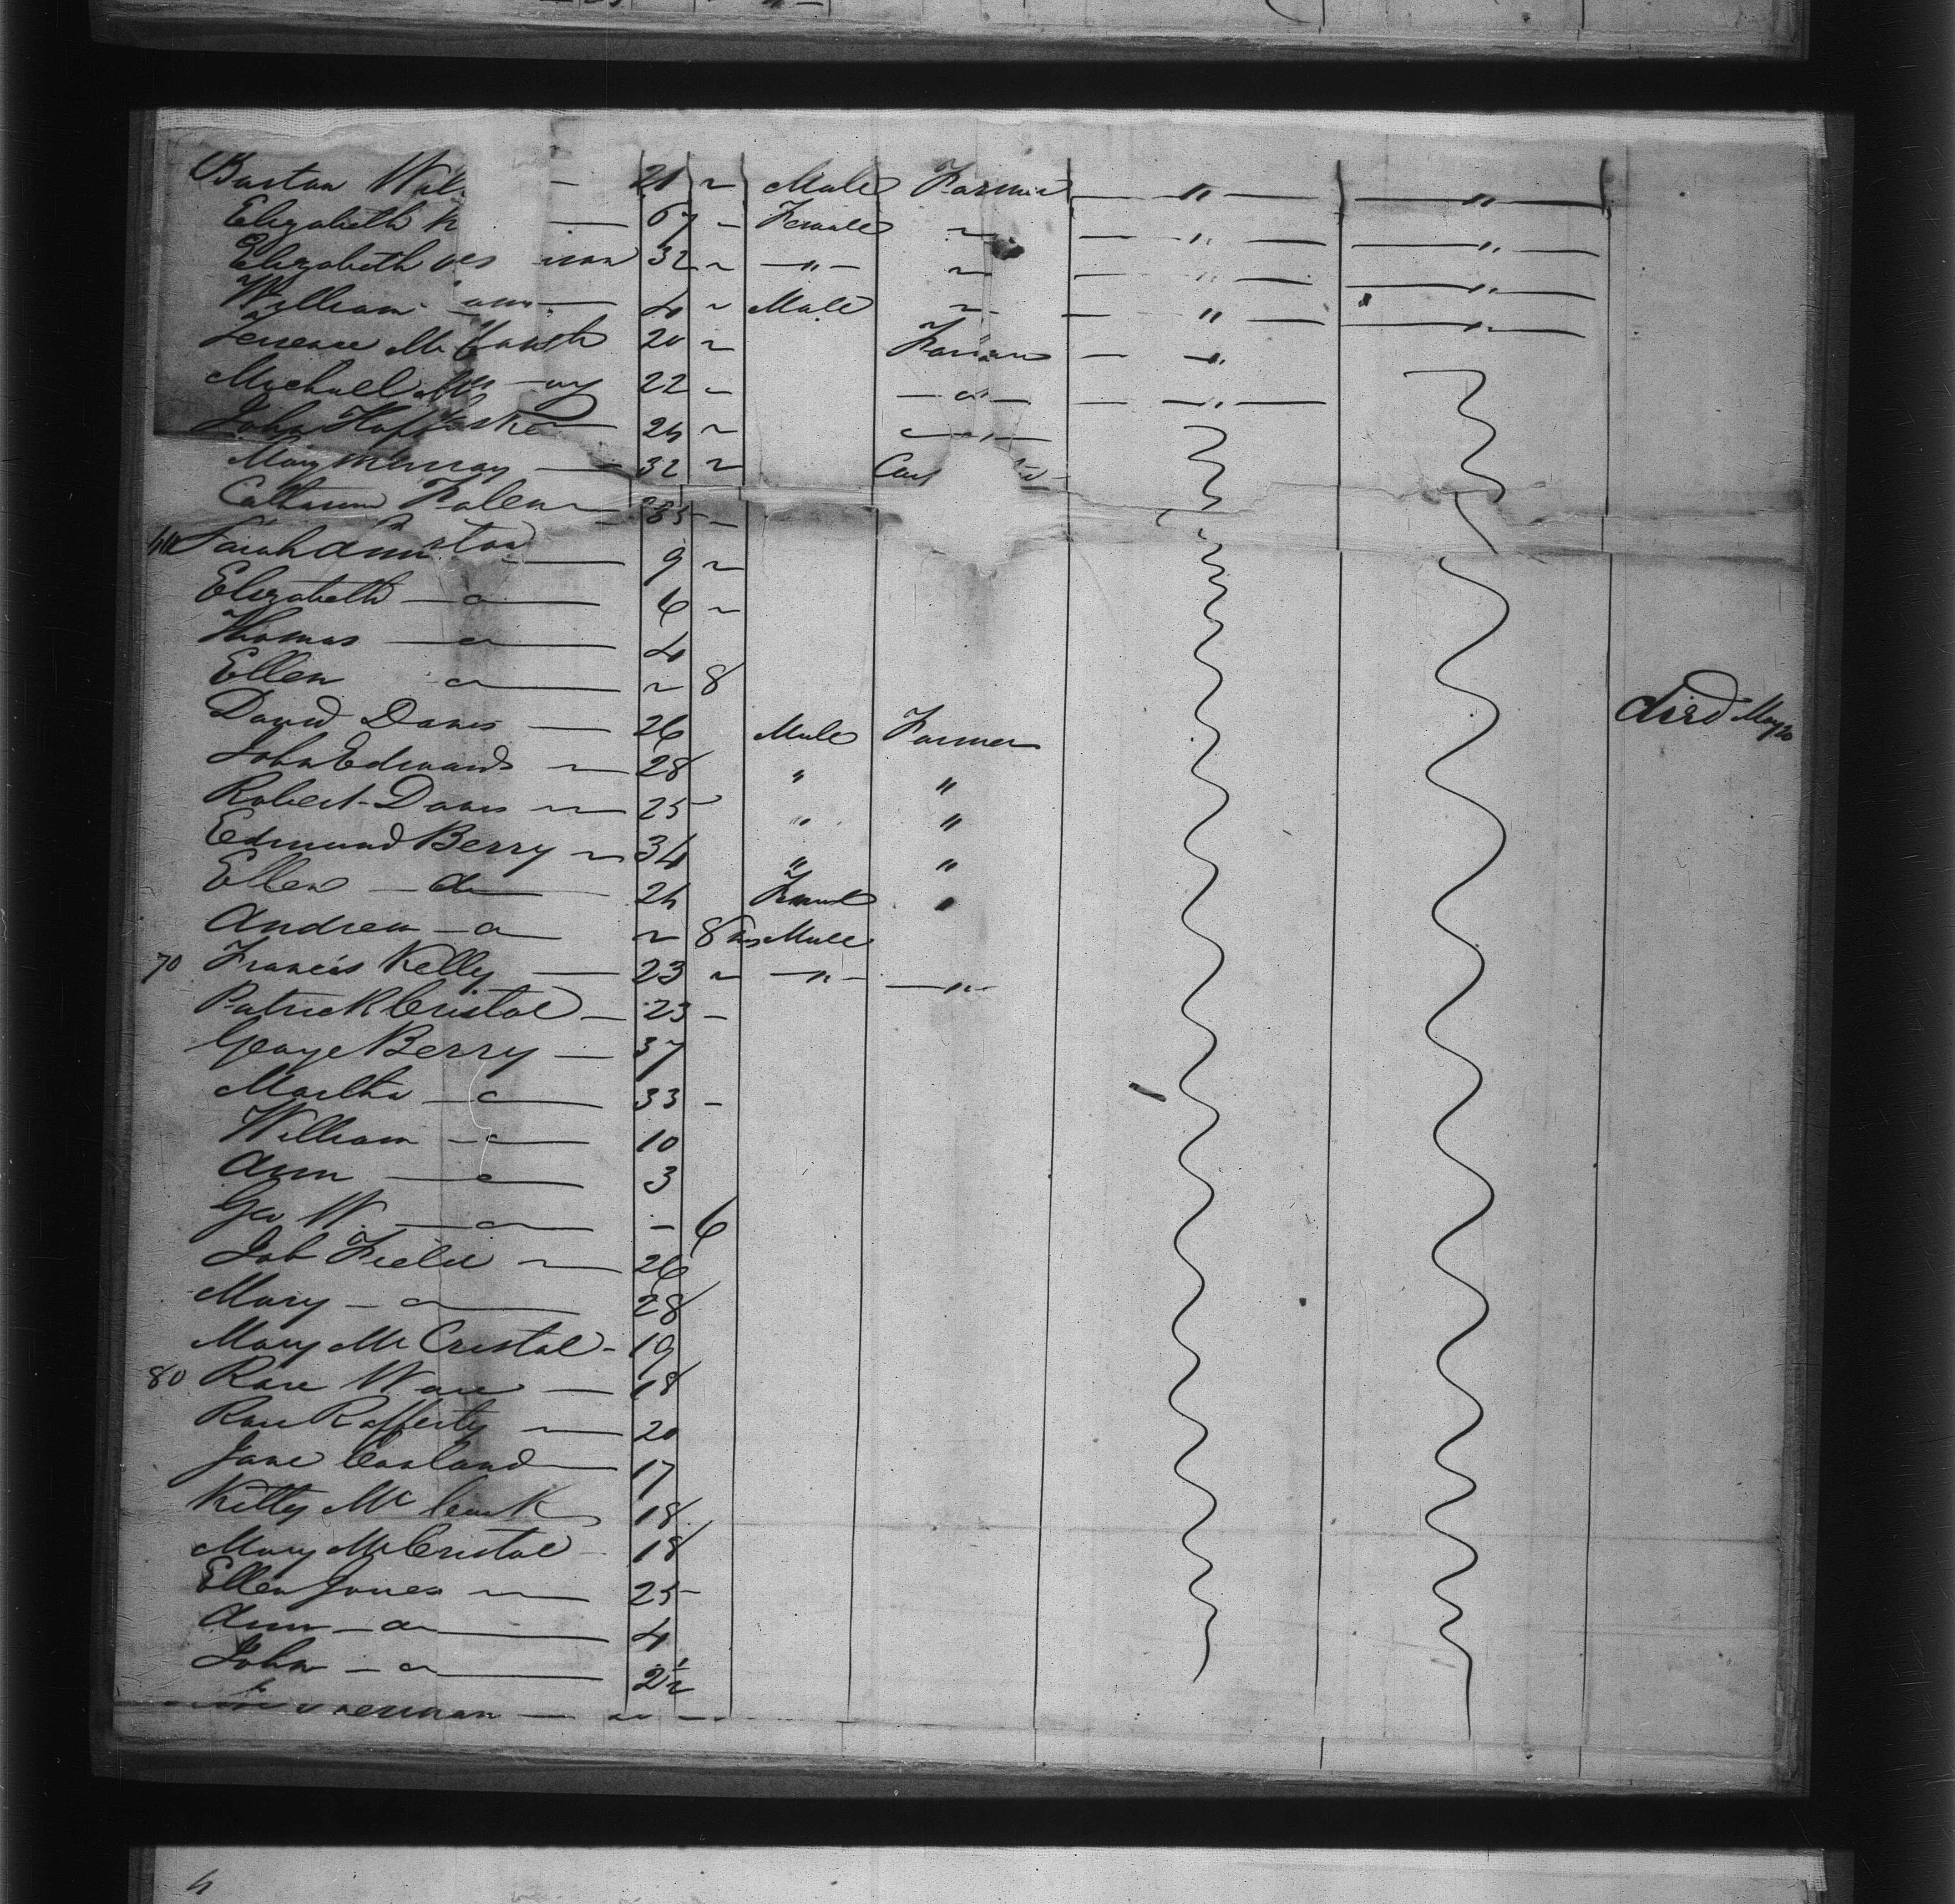 Barton 21 ~ Male Farmer — " — — " —
Elizabeth 67 - Female ~ — " — — " —
Elizabeth 32 ~ — " — ~ — " — — " —
William 4 ~ Male ~ — " — — " —
Terence Mc 20 ~ Farmer — "
Michael 22 - — " — — " —
John 24 ~ — " —
Mary Murray — 32 ~
Catharine 35 -
Sarah Ann 9 ~
Elizabeth — do — 6 ~
Thomas — do — 4
Ellen do — ~ 8 died May 20
David Davis — 26 Male Farmer
John Edwards ~ 28 " "
Robert Davis ~ 25 " "
Edmund Berry ~ 34 " "
Ellen — do — 24 Female "
Andrew — do — ~ 8 ms Male
70 Francis Kelly — 23 ~ — " — — " —
Patrick Cristal — 23 -
George Berry — 37
Martha — do — 33 -
William — do — 10
Ann — do — 3
Geo W. — do — - 6
Job Field ~ 26
Mary — do — 28
Mary Mc Cristal - 19
80 Rose Ware — 18
Rose Rafferty ~ 20
Jane 17
Kitty Mc 18
Mary McCristal - 18
Ellen Jones ~ 25
Ann — do — 4
John — do — 2½